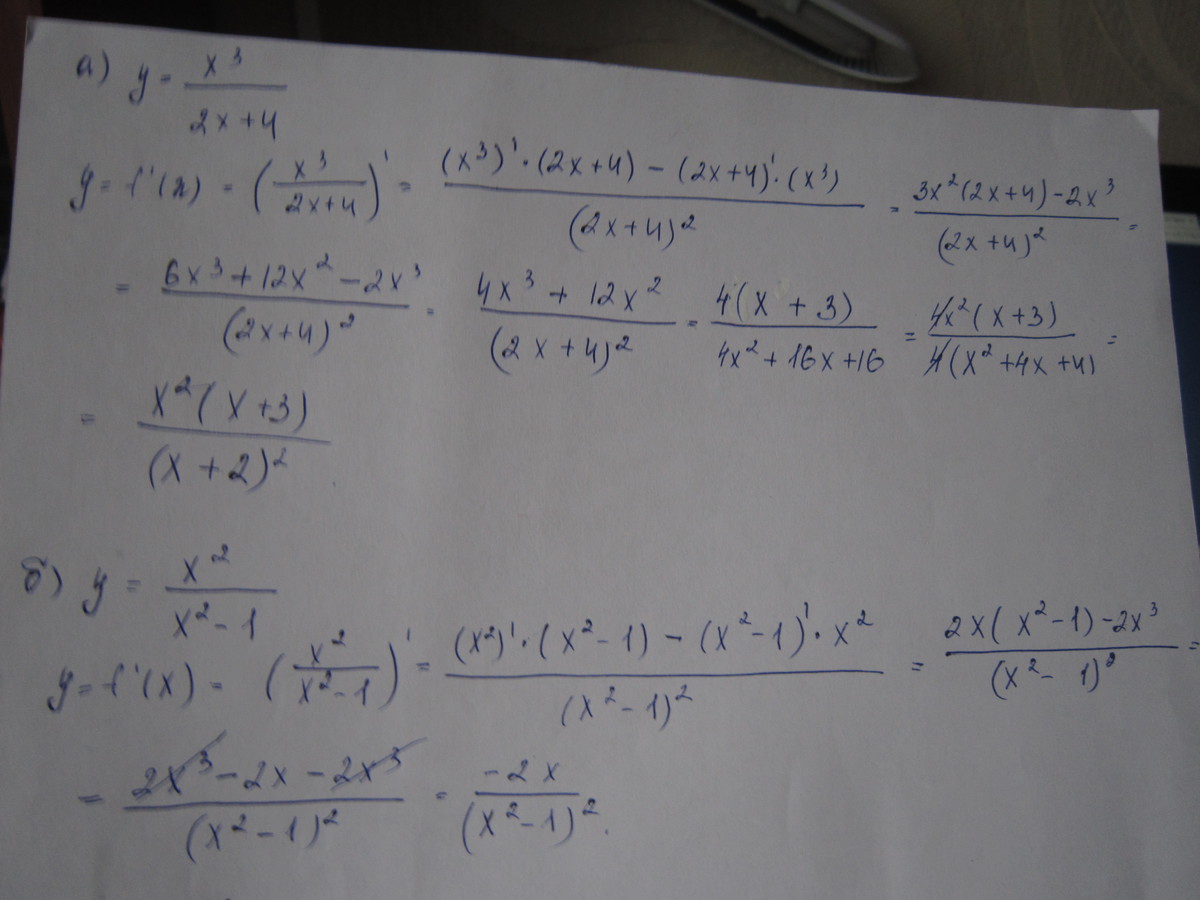 а) y = x³/(2x+4)
y = f'(x) = (x³/(2x+4))' = ((x³)'·(2x+4) − (2x+4)'·(x³))/(2x+4)² = (3x²(2x+4)−2x³)/(2x+4)² =
= (6x³+12x²−2x³)/(2x+4)² = (4x³+12x²)/(2x+4)² = 4(x+3)/(4x²+16x+16) = 4x²(x+3)/4(x²+4x+4) =
= x²(x+3)/(x+2)².
б) y = x²/(x²−1)
y = f'(x) = (x²/(x²−1))' = ((x²)'·(x²−1) − (x²−1)'·x²)/(x²−1)² = (2x(x²−1)−2x³)/(x²−1)² =
= (2x³−2x−2x³)/(x²−1)² = −2x/(x²−1)².